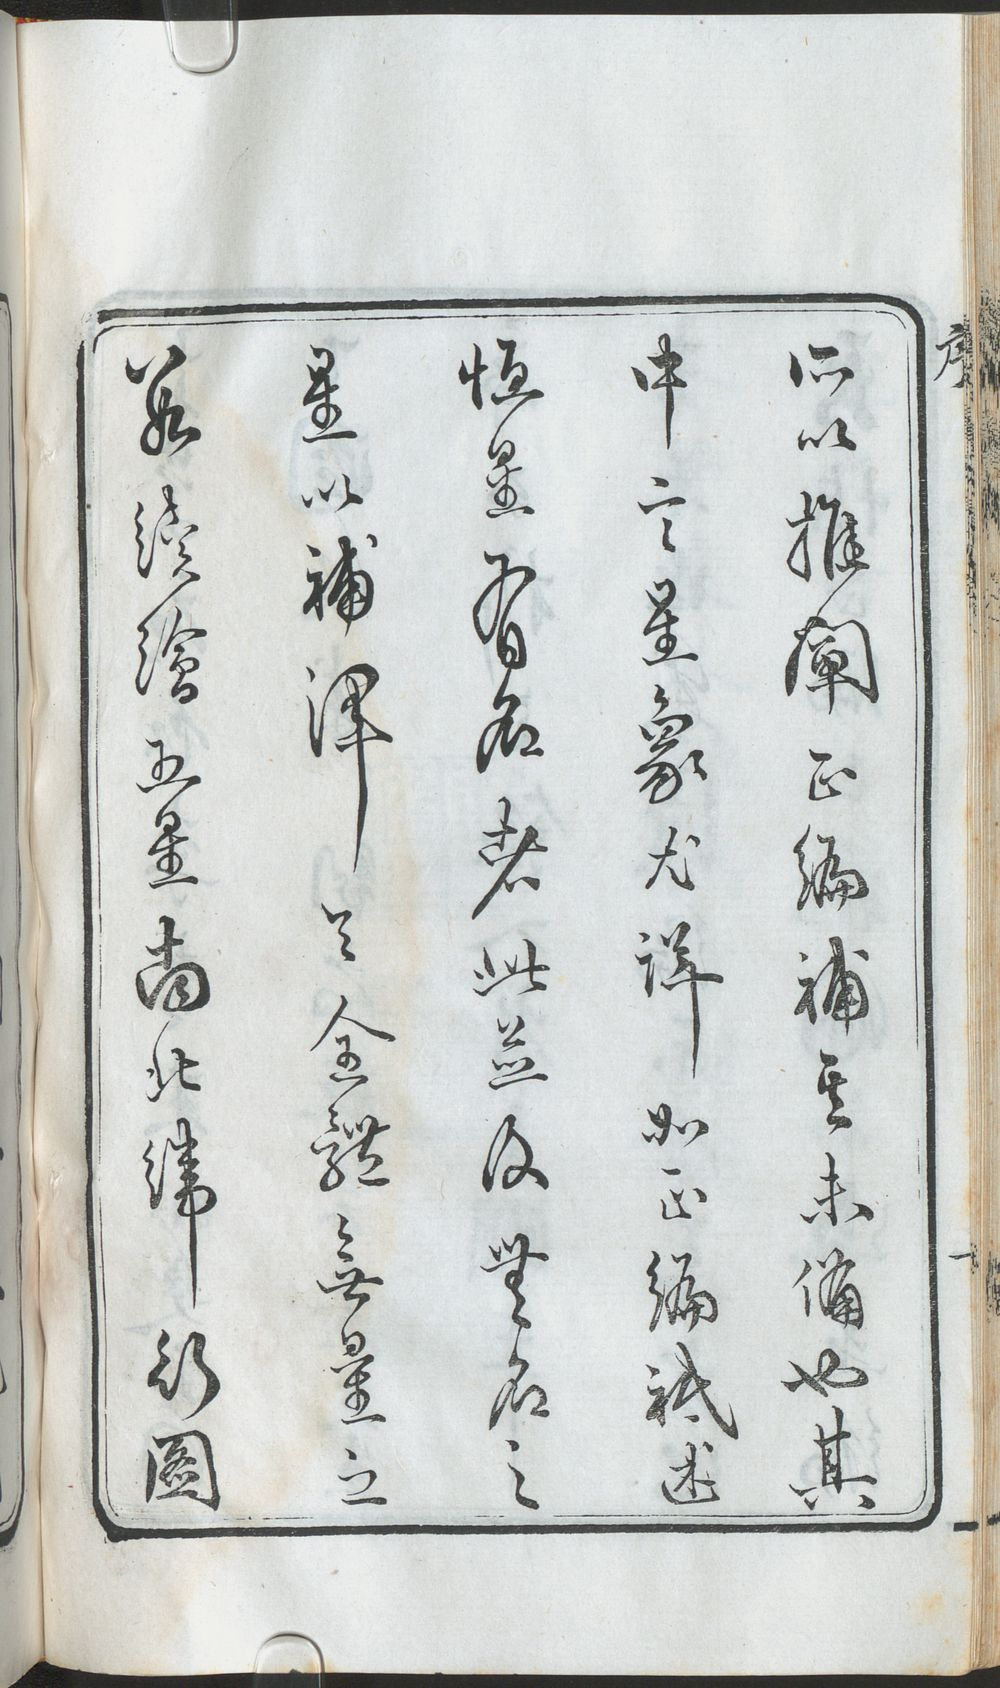 序
一
所以推闡正編補其未備也其
中言星象尤詳如正編祇述
恒星有名者此並及無名之
星以補渾天全體無量之
數續繪五星南北緯行圖